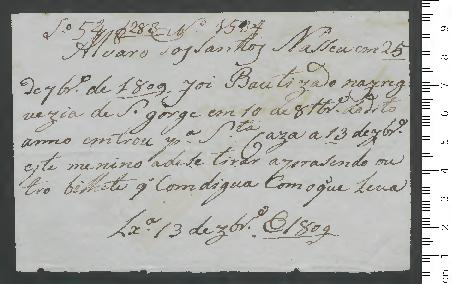 Nº 54 1283 Nº 1594
Alvaro dos santtos Nasceu em 25
de 7brº de 1809 foi Bautizado na freg
uezia de S. gorge em 10 de 8tbrº do dito
anno emtrou pª Stª Caza a 13 de zbrº
este menino adese tirar aprasendo ou
tro bilhete q Com digua Comoque Leva
Lxª 13 de zbrº @ 1809